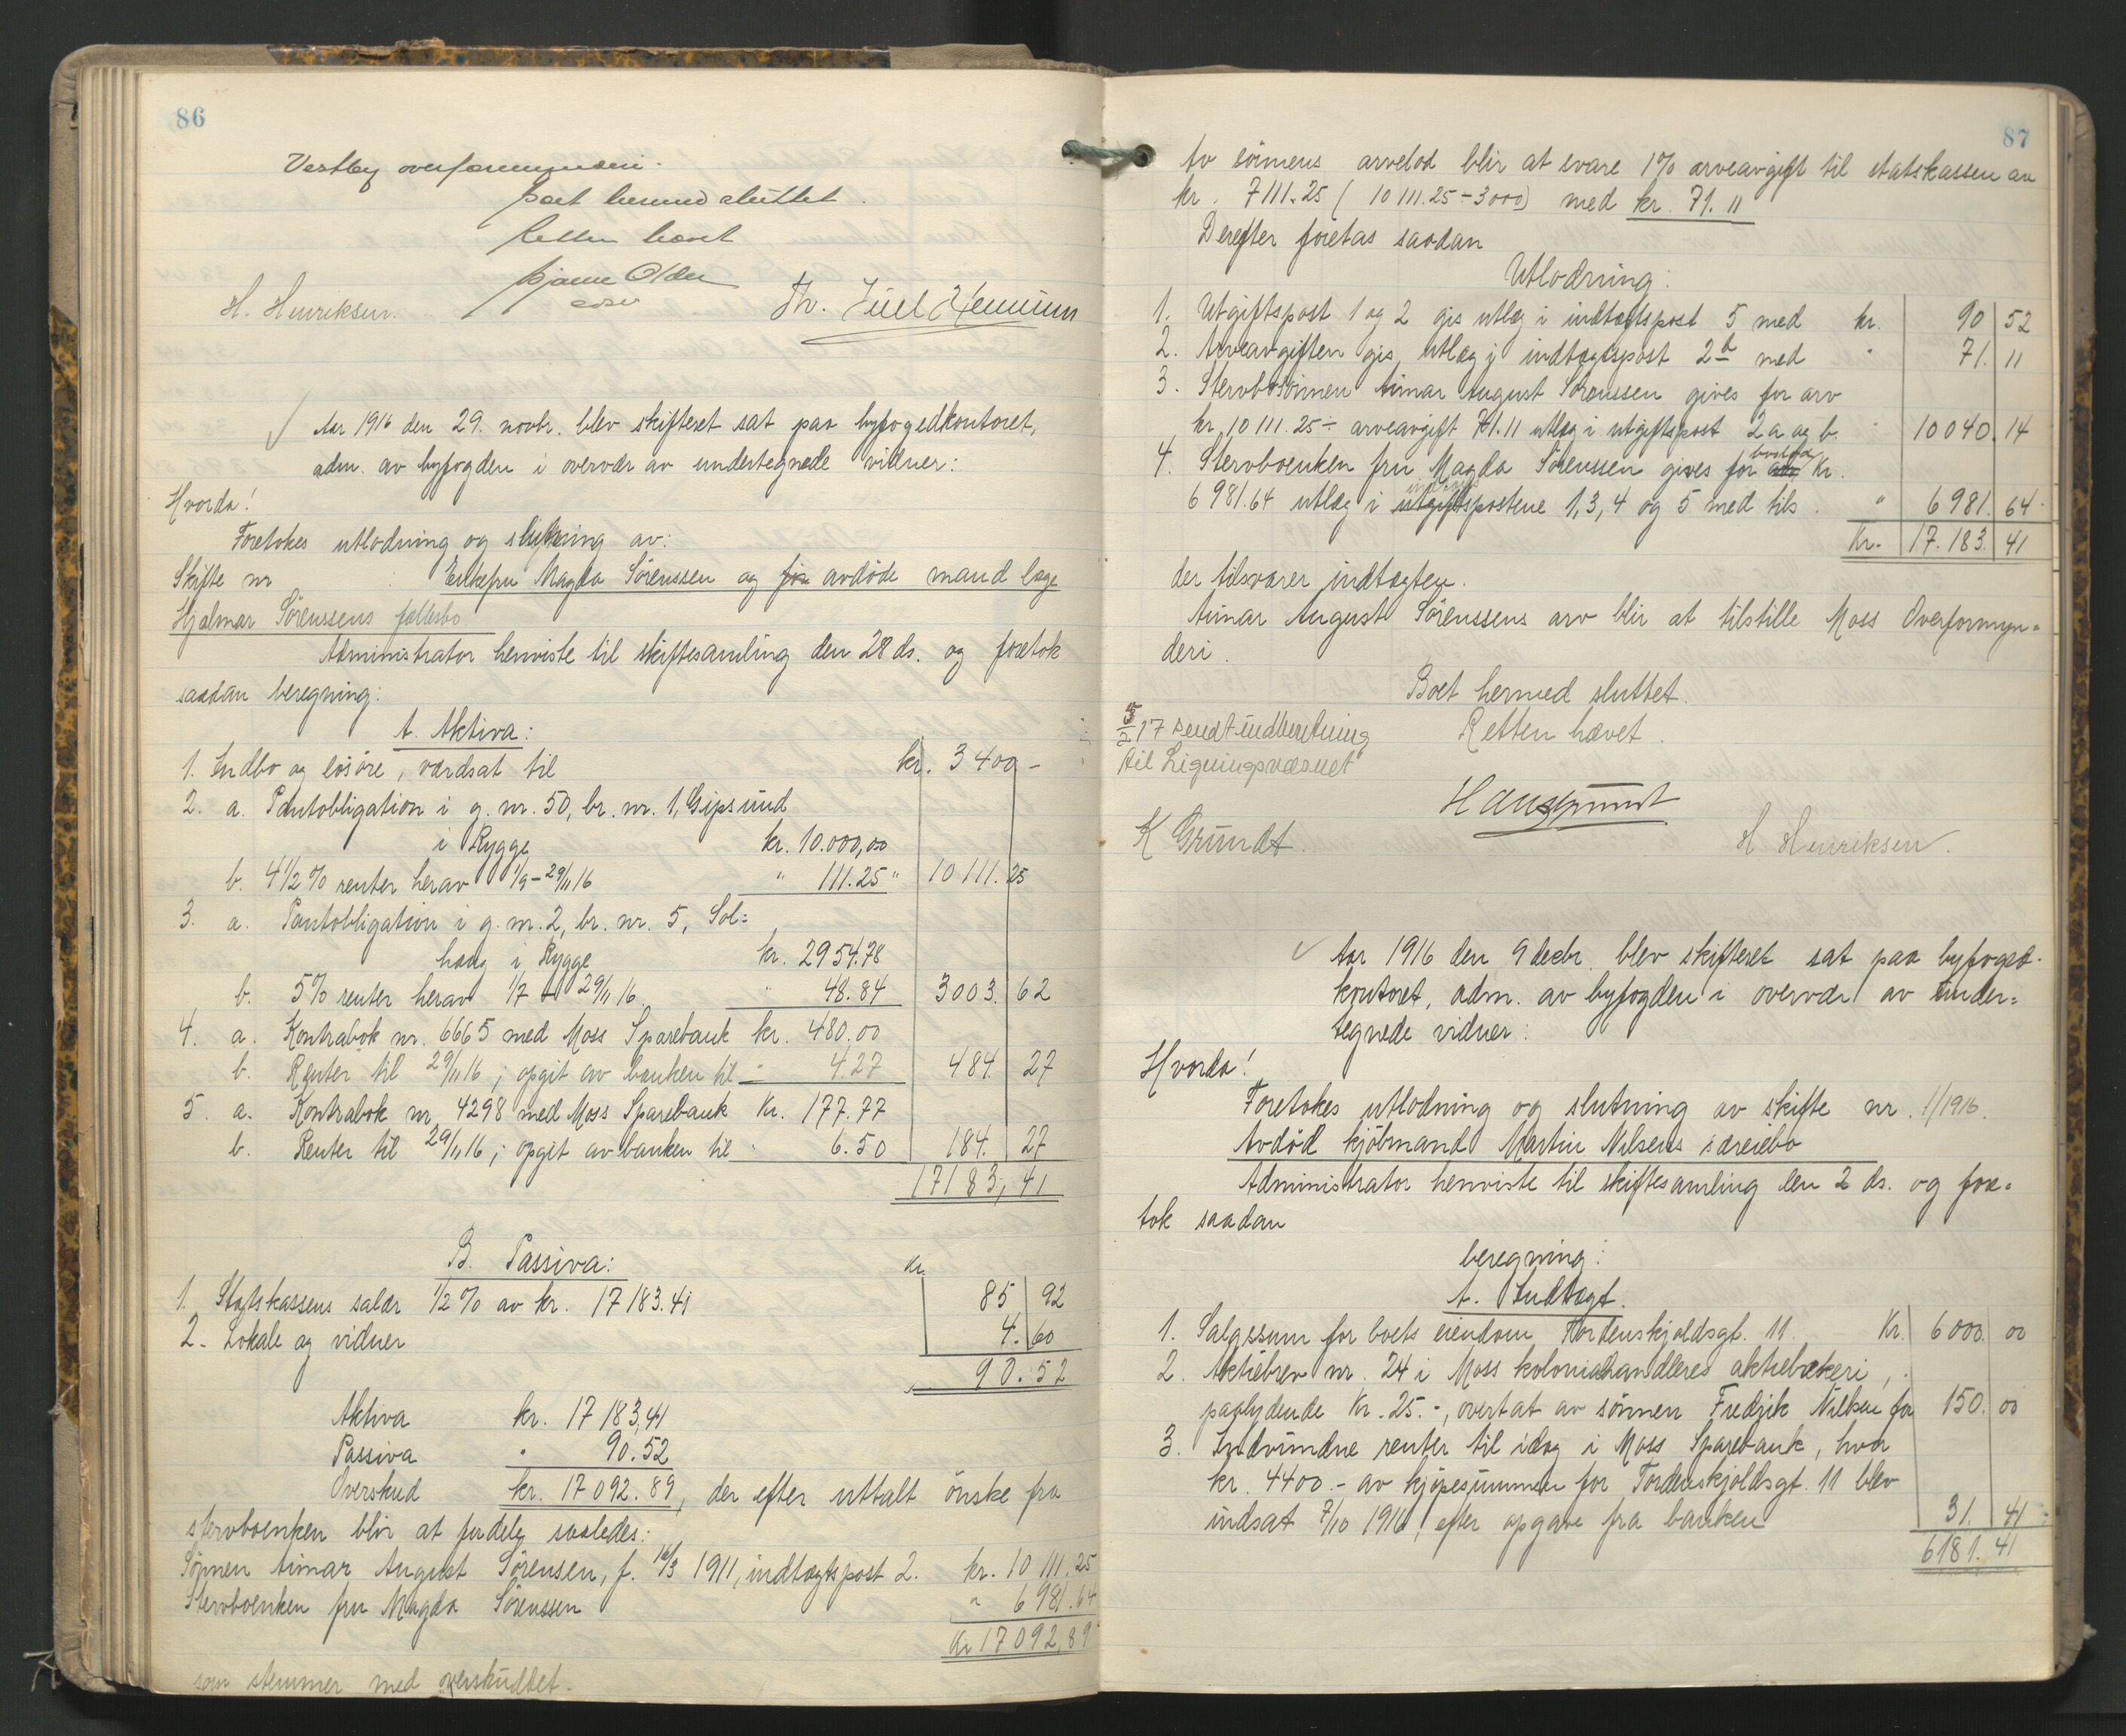 86
Vestby overformynderi.
Boet hermed sluttet.
Retten hævet
Bjarne Olden
H. Henriksen. Th. Juel
Aar 1916 den 29. novbr. blev skifteret sat paa byfogedkontoret,
adm. av byfogden i overvær av undertegnede vidner:
Hvorda!
Foretokes utlodning og slutning av:
Skifte nr : Enkefru Magda Sörenssen og avdöde mand læge
Hjalmar Sörenssens fællesbo
Administrator henviste til skiftesamling den 28 ds. og foretok
saadan beregning:
A. Aktiva:
1. Indbo og lösöre, værdsat til kr. 3400 -
2. a. Pantobligation i g. nr. 50, br. nr. 1, Gipsund
i Rygge kr. 10.000,00
b. 4 1/2 % renter herav 1/9 - 29/11 16 " 111.25 " 10111.25
3. a. Pantobligation i g. nr. 2, br. nr. 5, Sol=
haug i Rygge kr. 2954.78
b. 5 % renter herav 1/7 - 29/11 16 " 48.84 3003.62
4. a. Kontrabok nr. 6665 med Moss Sparebank kr. 480.00
b. Renter til 29/11 16, opgit av banken til " 4.27 484. 27
5. a. Kontrabok nr 4298 med Moss Sparebank Kr. 177.77
b. Renter til 29/11 16, opgit av banken til " 6.50 184. 27
17183,41
B. Passiva: Kr.
1. Statskassens salær 1/2 % av kr. 17183.41 85 92
2. Lokale og vidner 4. 60
90.52
Aktiva kr. 17183,41
Passiva " 90.52
Overskud kr. 17092.89, der efter uttalt önske fra
stervboenken blir at fordele saaledes:
Sönnen Aimar August Sörensen, f. 16/3 1911, indtægtspost 2. kr. 10111.25
Stervboenken fru Magda Sörenssen " 6981.64
Kr 17092,89
som stemmer med overskuddet.
87
Av sönnens arvelod blir at svare 1% arveavgift til statskassen av
kr. 7111.25 (10111.25 ÷ 3000) med kr. 71.11
Derefter foretas saadan
Utlodning:
1. Utgiftspost 1 og 2 gis utlæg i indtægtspost 5 med kr. 90 52
2. Arveavgiften gis utlæg i indtægtspost 2 b med " 71. 11
3. Stervbosönnen Aimar August Sörenssen gives for arv
kr. 10111.25 ÷ arveavgift 71.11 utlæg i utgiftspost 2 a og b. " 10040.14
4. Stervboenken fru Magda Sörenssen gives for boslod Kr.
6981.64 utlæg i utgiftspostene 1, 3, 4 og 5 med tils. " 6981.64
Kr. 17.183.41
der tilsvarer indtægten.
Aimar August Sörenssens arv blir at tilstille Moss Overformyn=
deri.
Boet hermed sluttet.
5/2 17 sendt indberetning
til Ligningsvæsnet
Retten hævet.
Hans Grundt
K Grundt. H Henriksen.
Aar 1916 den 9 decbr. blev skifteret sat paa byfoged-
kontoret, adm. av byfogden i overvær av under=
tegnede vidner:
Hvorda!
Foretokes utlodning og slutning av skifte nr. 1/1916.
Avdöd kjöbmand Martin Nilsens særeiebo
Administrator henviste til skiftesamling den 2 ds. og fore=
tok saadan
beregning:
A. Indtægt.
1. Salgssum for boets eiendom Tordenskjoldsgt. 11. Kr. 6000. 00
2. Aktiebrev nr. 24 i Moss kolonialhandleres aktiebakeri,
paalydende Kr. 25.-, overtat av sönnen Fredrik Nilsen for 150. 00
3. Indvundne renter til idag i Moss Sparebank, hvor
kr. 4400.- av kjöpesummen for Tordenskjoldsgt. 11 blev
indsat 7/10 1916, efter opgave fra banken 31. 41
6181.41